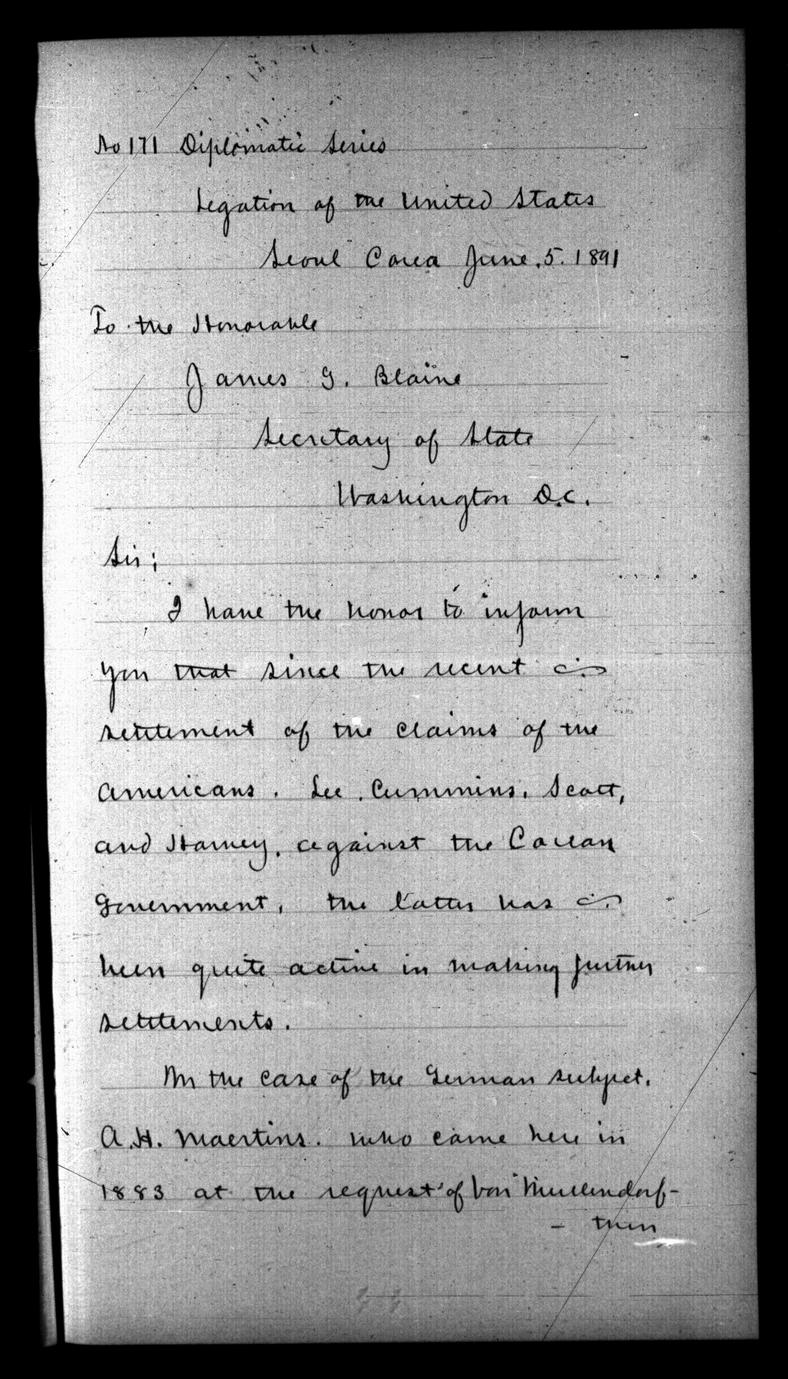 No 171 Diplomatic Series
Legation of the United States
Seoul Corea June. 5. 1891
To the Honorable
James G. Blaine
Secretary of State
Washington D.C.
Sir;
I have the honor to inform
you that since the recent
settlement of the claims of the
Americans. Lee. Cummins. Scott,
and Harvey. against the Corean
Government, the latter has
been quite active in making further
settlements.
In the case of the German subject.
A.H. Maertins. who came here in
1883 at the request of von Mullendorf-
- then